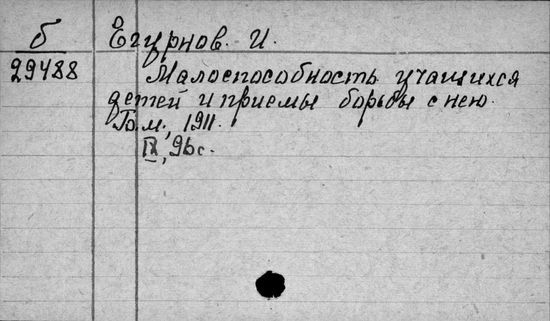 б Егурнов И.
29488 Малоспособность учащихся
детей и приемы борьбы с нею.
б.м., 1911.
IV, 96 с.